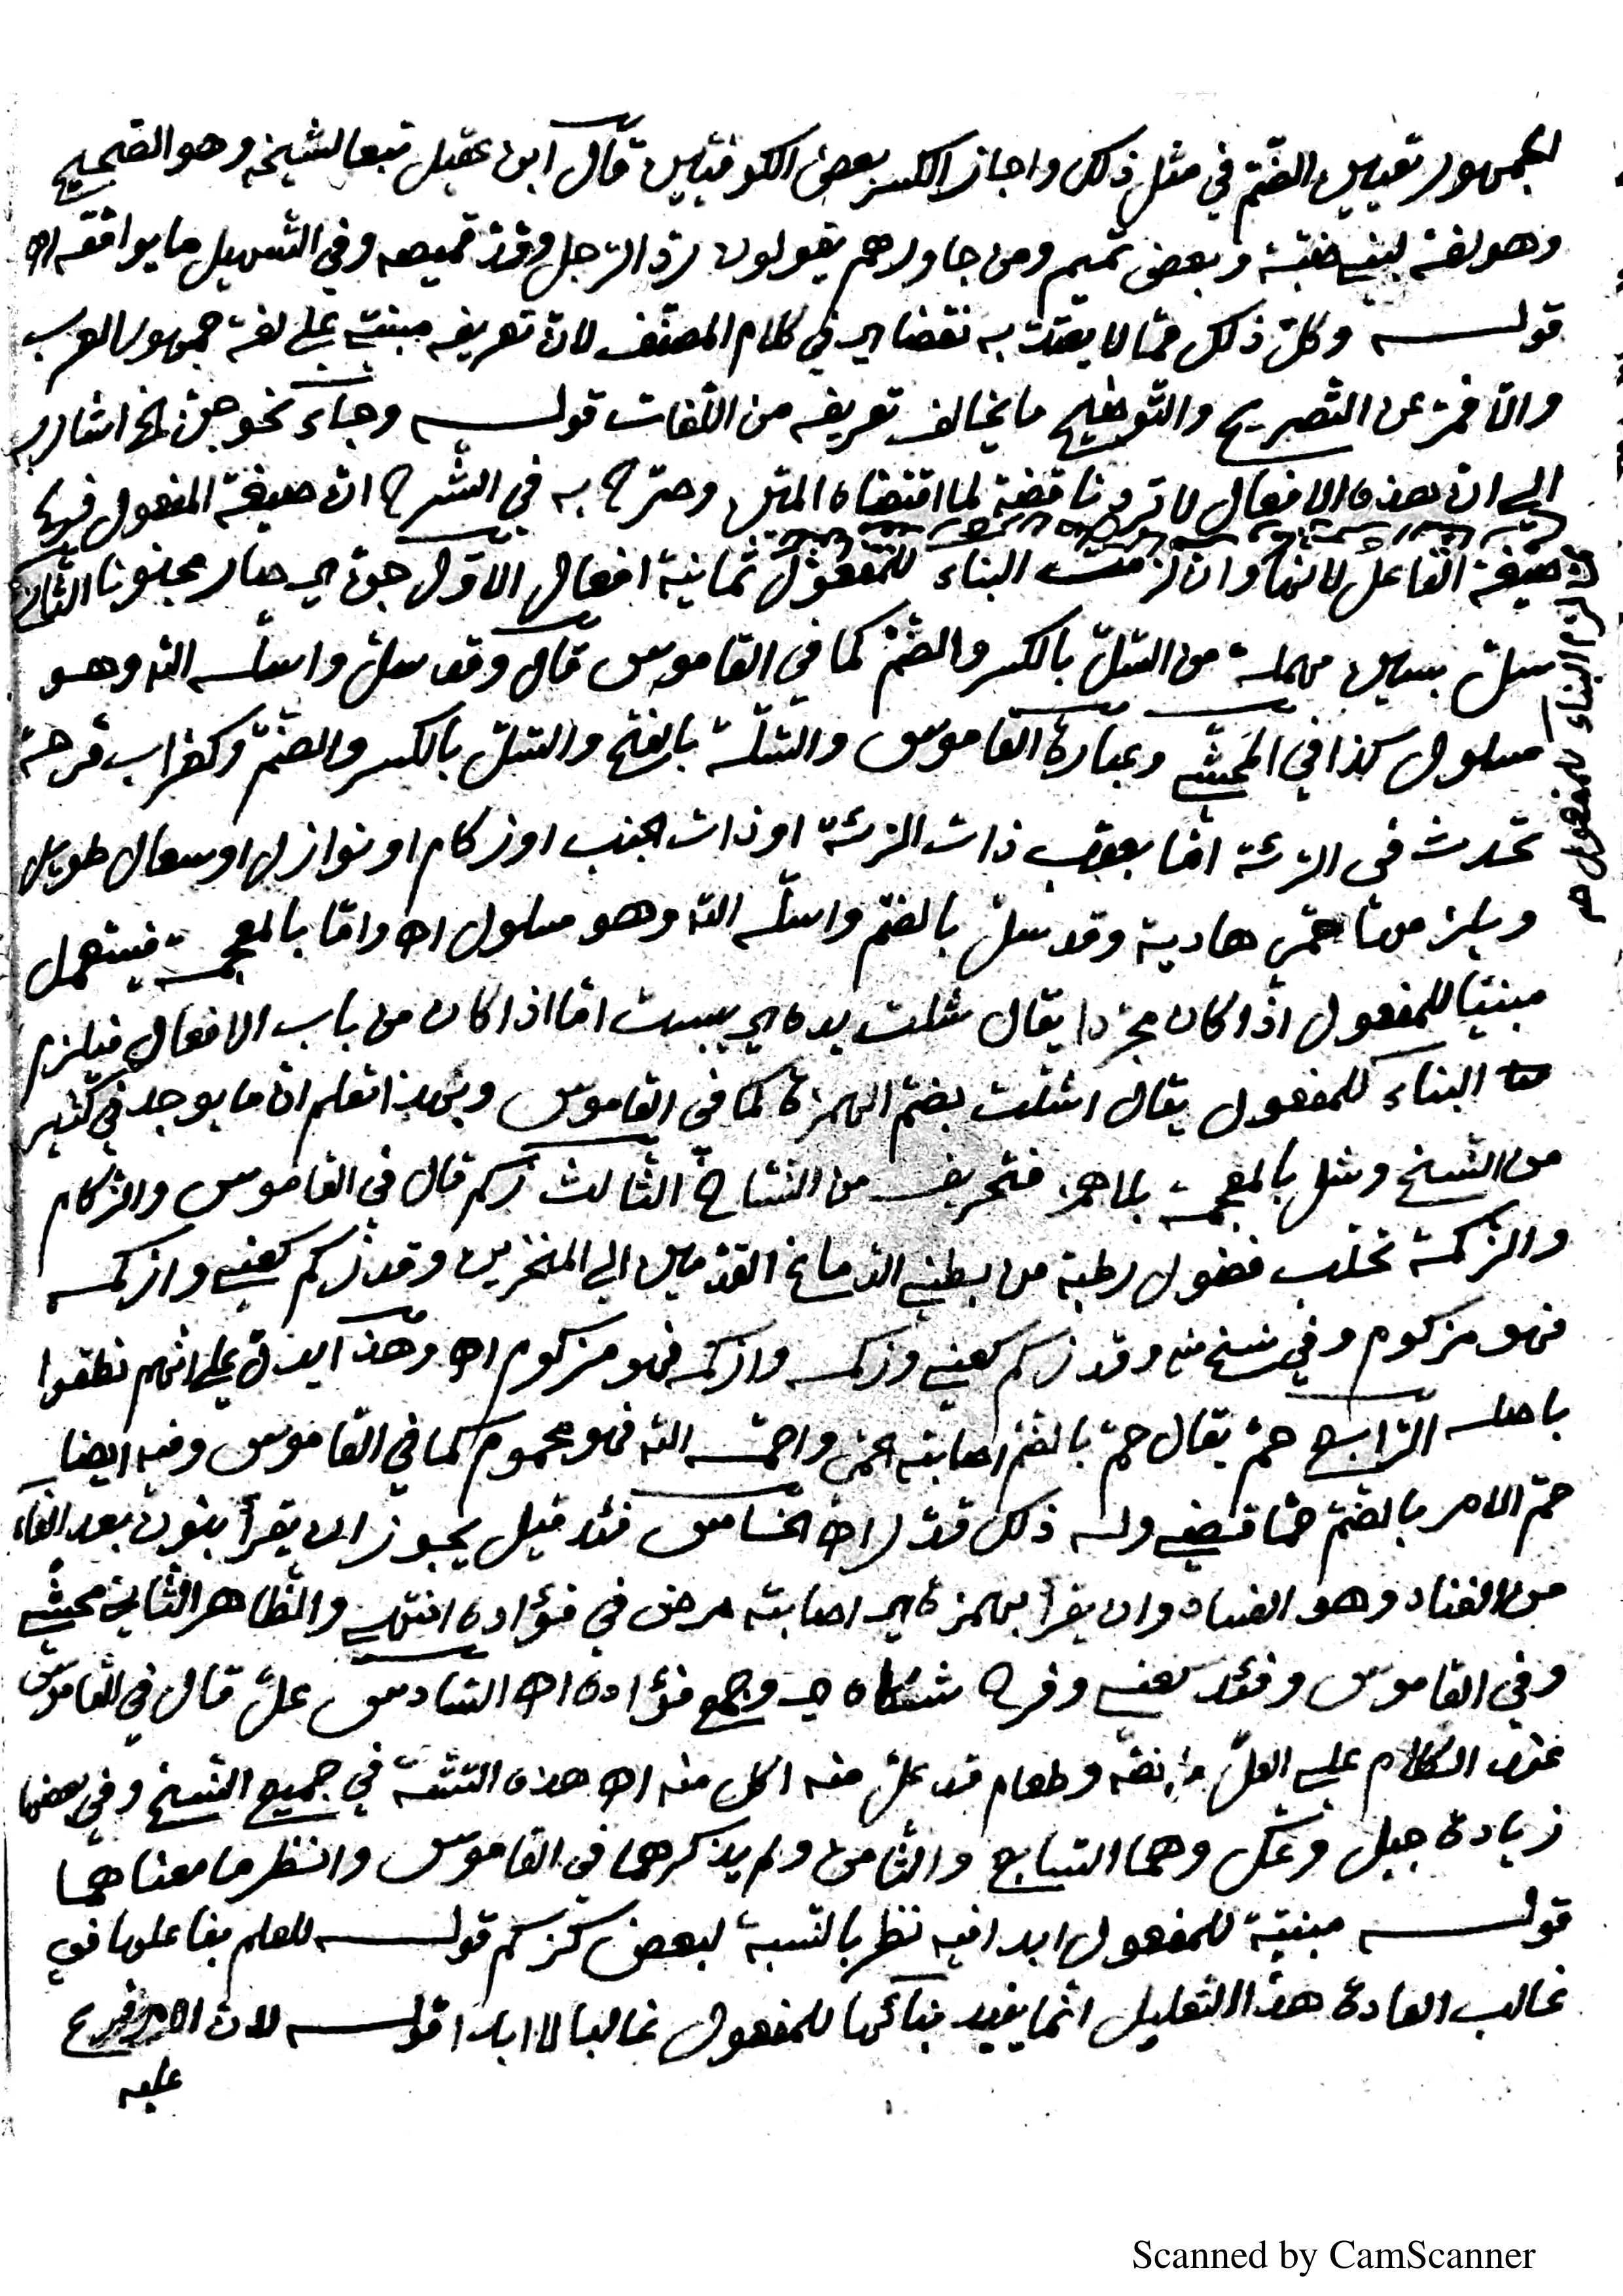 الجمهور تعيين الضّم في مثل ذلك واجاز الكسر بعض الكوفيّين قال ابن عقيل تبعا لشيخه وهو الصّحيح
وهو لغة لبني ضبّة وبعض تميم ومن جاورهم يقولون ردّ الرّجل وقدّ قميصه وفي التّسهيل ما يوافقه اه
قوله وكلّ ذلك ممّا لا يعتدّ به نقضا اي في كلام المصنّف لانّ تعريفه مبنيّ على لغة جمهور العرب
والّا فمن التّصريح والتّوضيح ما يخالف تعريفه من اللّغات قوله وجاء نحو جنّ الخ اشار به
الي انّ هذه الافعال لا ترد ناقضة لما اقتضاه المتن وصرّح به في الشّرح انّ صيغة المفعول فرع
صيغة الفاعل لانّها وان لزمت البناء للمفعول ثمانية افعال الاوّل جنّ اي صار مجنونا الثّاني
لازم البناء للمفعول صح
سلّ بسين مهملة من السّلّ بالكسر والضّمّ كما في القاموس قال وقد سلّ واسلّه اللّه وهو
مسلول كذا في المحشّي وعبارة القاموس والسّلّة بالفتح والسّلّ بالكسر والضّمّ وكغراب قرحة
تحدث في الرّئة امّا بعقب ذات الرّئة او ذات الجنب او زكام او نوازل او سعال طويل
ويلزمها حمّى هادية وقد سلّ بالضّم واسلّه اللّه وهو مسلول اه وامّا بالمعجمة فيستعمل
مبنيّا للمفعول اذا كان مجرّدا يقال شلت يده اي يبست امّا اذا كان من باب الافعال فيلزم
البناء للمفعول يقال اشلّت بضمّ الهمزة كما في القاموس وبهذا تعلم انّ ما يوجد في كثير
من النّسخ وشل بالمعجمة بلا همز فتحريف من النّسّاخ الثّالث زكم قال في القاموس والزّكام
والزّكمة تحلّب فضول رطبة من بطني الدّماغ المقدّمين الي المنخرين وقد زكم كعني وازكمه
فهو مزكوم وفي نسخ منه وقد زكم كعني وزكمه وازكمه فهو مزكوم اه وهذا يدلّ على انّهم نطقوا
باصله الرّابع حمّ يقال حمّ بالضّمّ اصابته الحمّى واحمّه اللّه فهو محموم كما في القاموس وفيه ايضا
حمّ الامر بالضّمّ حمّا قضي وله ذلك قدّر اه الخامس فئد قيل يجوز ان يقرأ بنون بعد الفاء
من الفناد وهو الفساد وان يقرأ بهمزة اي اصابته مرض في فؤاده انتهى والظّاهر الثّاني محشّي
وفي القاموس وفئد كعني وفرح شكاه اي وجع فؤاده اه السّادس علّ قال في القاموس
عند الكلام على العلّ وطعام قد علّ منه اكل منه اه هذه الستّة في جميع النّسخ وفي بعضها
زيادة جبل وعكل وهما السّابع والثّامن ولم يذكرهما في القاموس وانظر ما معناهما
قوله مبنيّة للمفعول ابدا فيه نظر بالنّسبة لبعض كزكم قوله للعلم بفاعلها في
غالب العادة هذا التّعليل انّما يفيد بنائها للمفعول غالبا لا ابدا قوله لانّ
عليه
Scanned by CamScanner